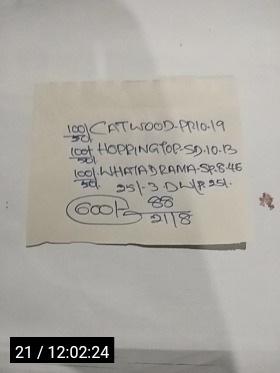 100/50/ CATWOOD-PR10.19
100/50/ HOPPINGTOP-SD.10.13
100/50/ WHATADRAMA-SP.8.46
25/-3 DW/P.25/-
600/- 88
21/8
21 / 12:02:24